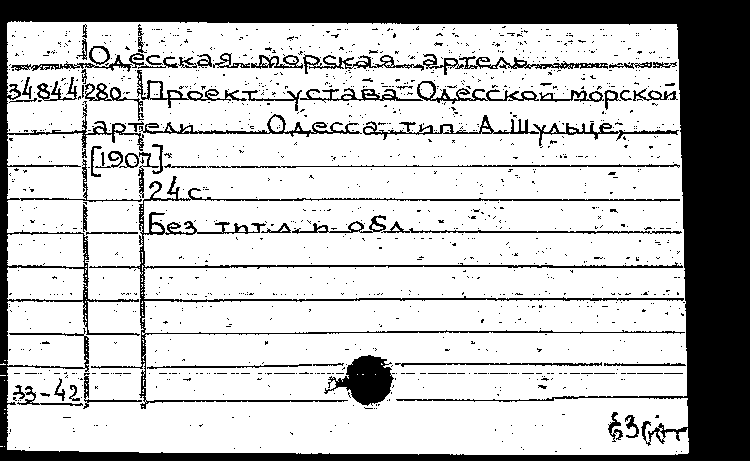 Одесская морская артель
34844 280. Проект устава Одесской морской
артели. Одесса, тип. А. Шульце,
[1907].
24 с.
Без тит. л. и обл.
33-42